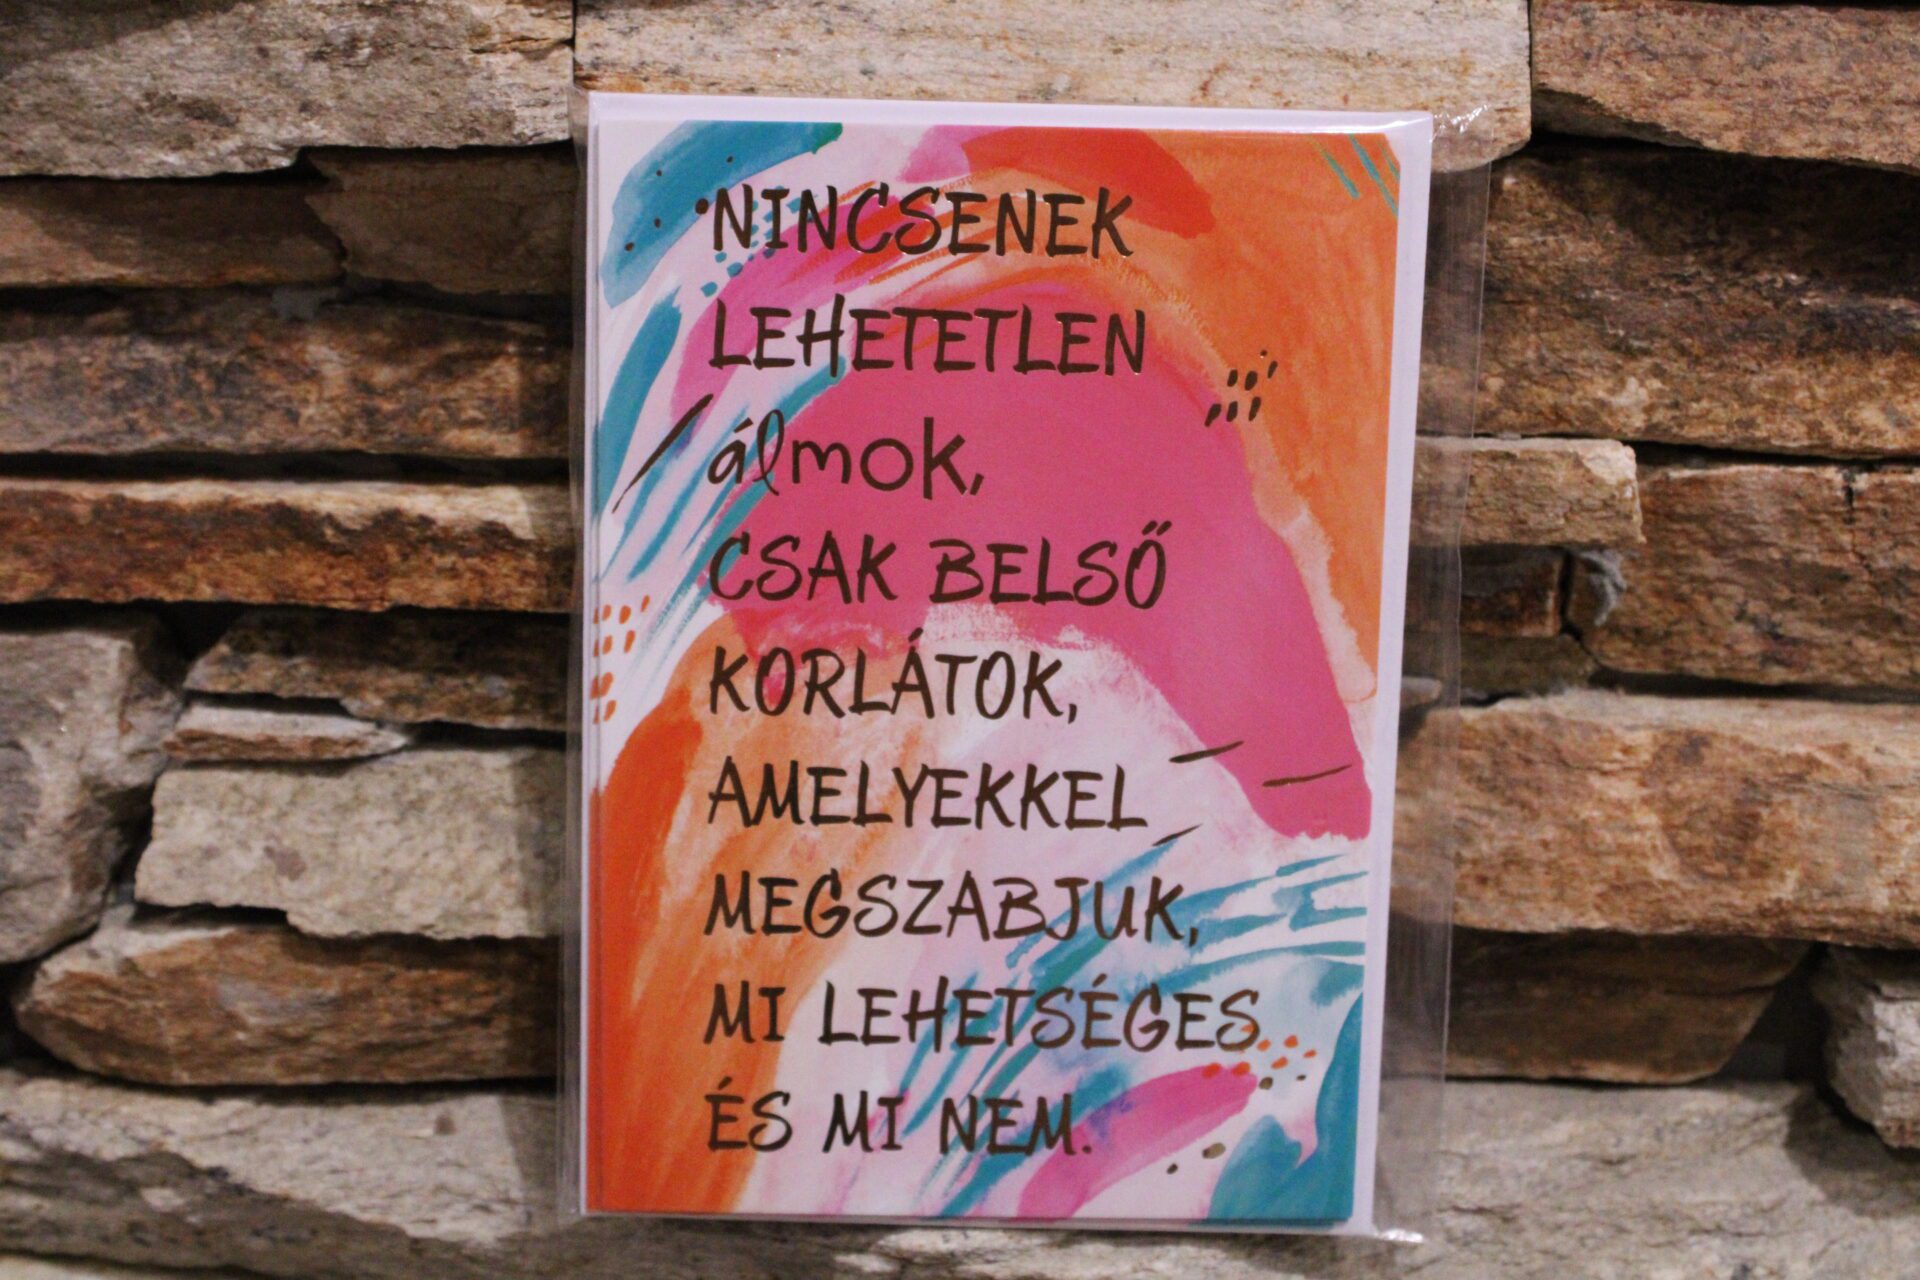 NINCSENEK
LEHETETLEN
álmok,
CSAK BELSŐ
KORLÁTOK,
AMELYEKKEL
MEGSZABJUK,
MI LEHETSÉGES
ÉS MI NEM.